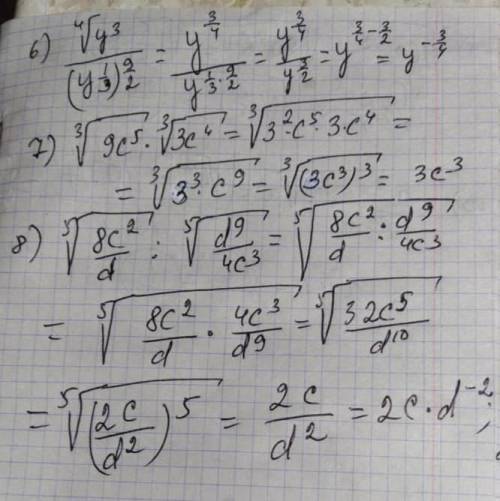 6) \frac{\sqrt[4]{y^3}}{(y^{\frac{1}{3}})^{\frac{9}{2}}} = \frac{y^{\frac{3}{4}}}{y^{\frac{1}{3} \cdot \frac{9}{2}}} = \frac{y^{\frac{3}{4}}}{y^{\frac{3}{2}}} = y^{\frac{3}{4} - \frac{3}{2}} = y^{-\frac{3}{4}}
7) \sqrt[3]{9c^5} \cdot \sqrt[3]{3c^4} = \sqrt[3]{3^2 \cdot c^5 \cdot 3 \cdot c^4} =
= \sqrt[3]{3^3 \cdot c^9} = \sqrt[3]{(3c^3)^3} = 3c^3
8) \sqrt[5]{\frac{8c^2}{d}} : \sqrt[5]{\frac{d^9}{4c^3}} = \sqrt[5]{\frac{8c^2}{d} : \frac{d^9}{4c^3}}
= \sqrt[5]{\frac{8c^2}{d} \cdot \frac{4c^3}{d^9}} = \sqrt[5]{\frac{32c^5}{d^{10}}}
= \sqrt[5]{\left(\frac{2c}{d^2}\right)^5} = \frac{2c}{d^2} = 2c \cdot d^{-2};